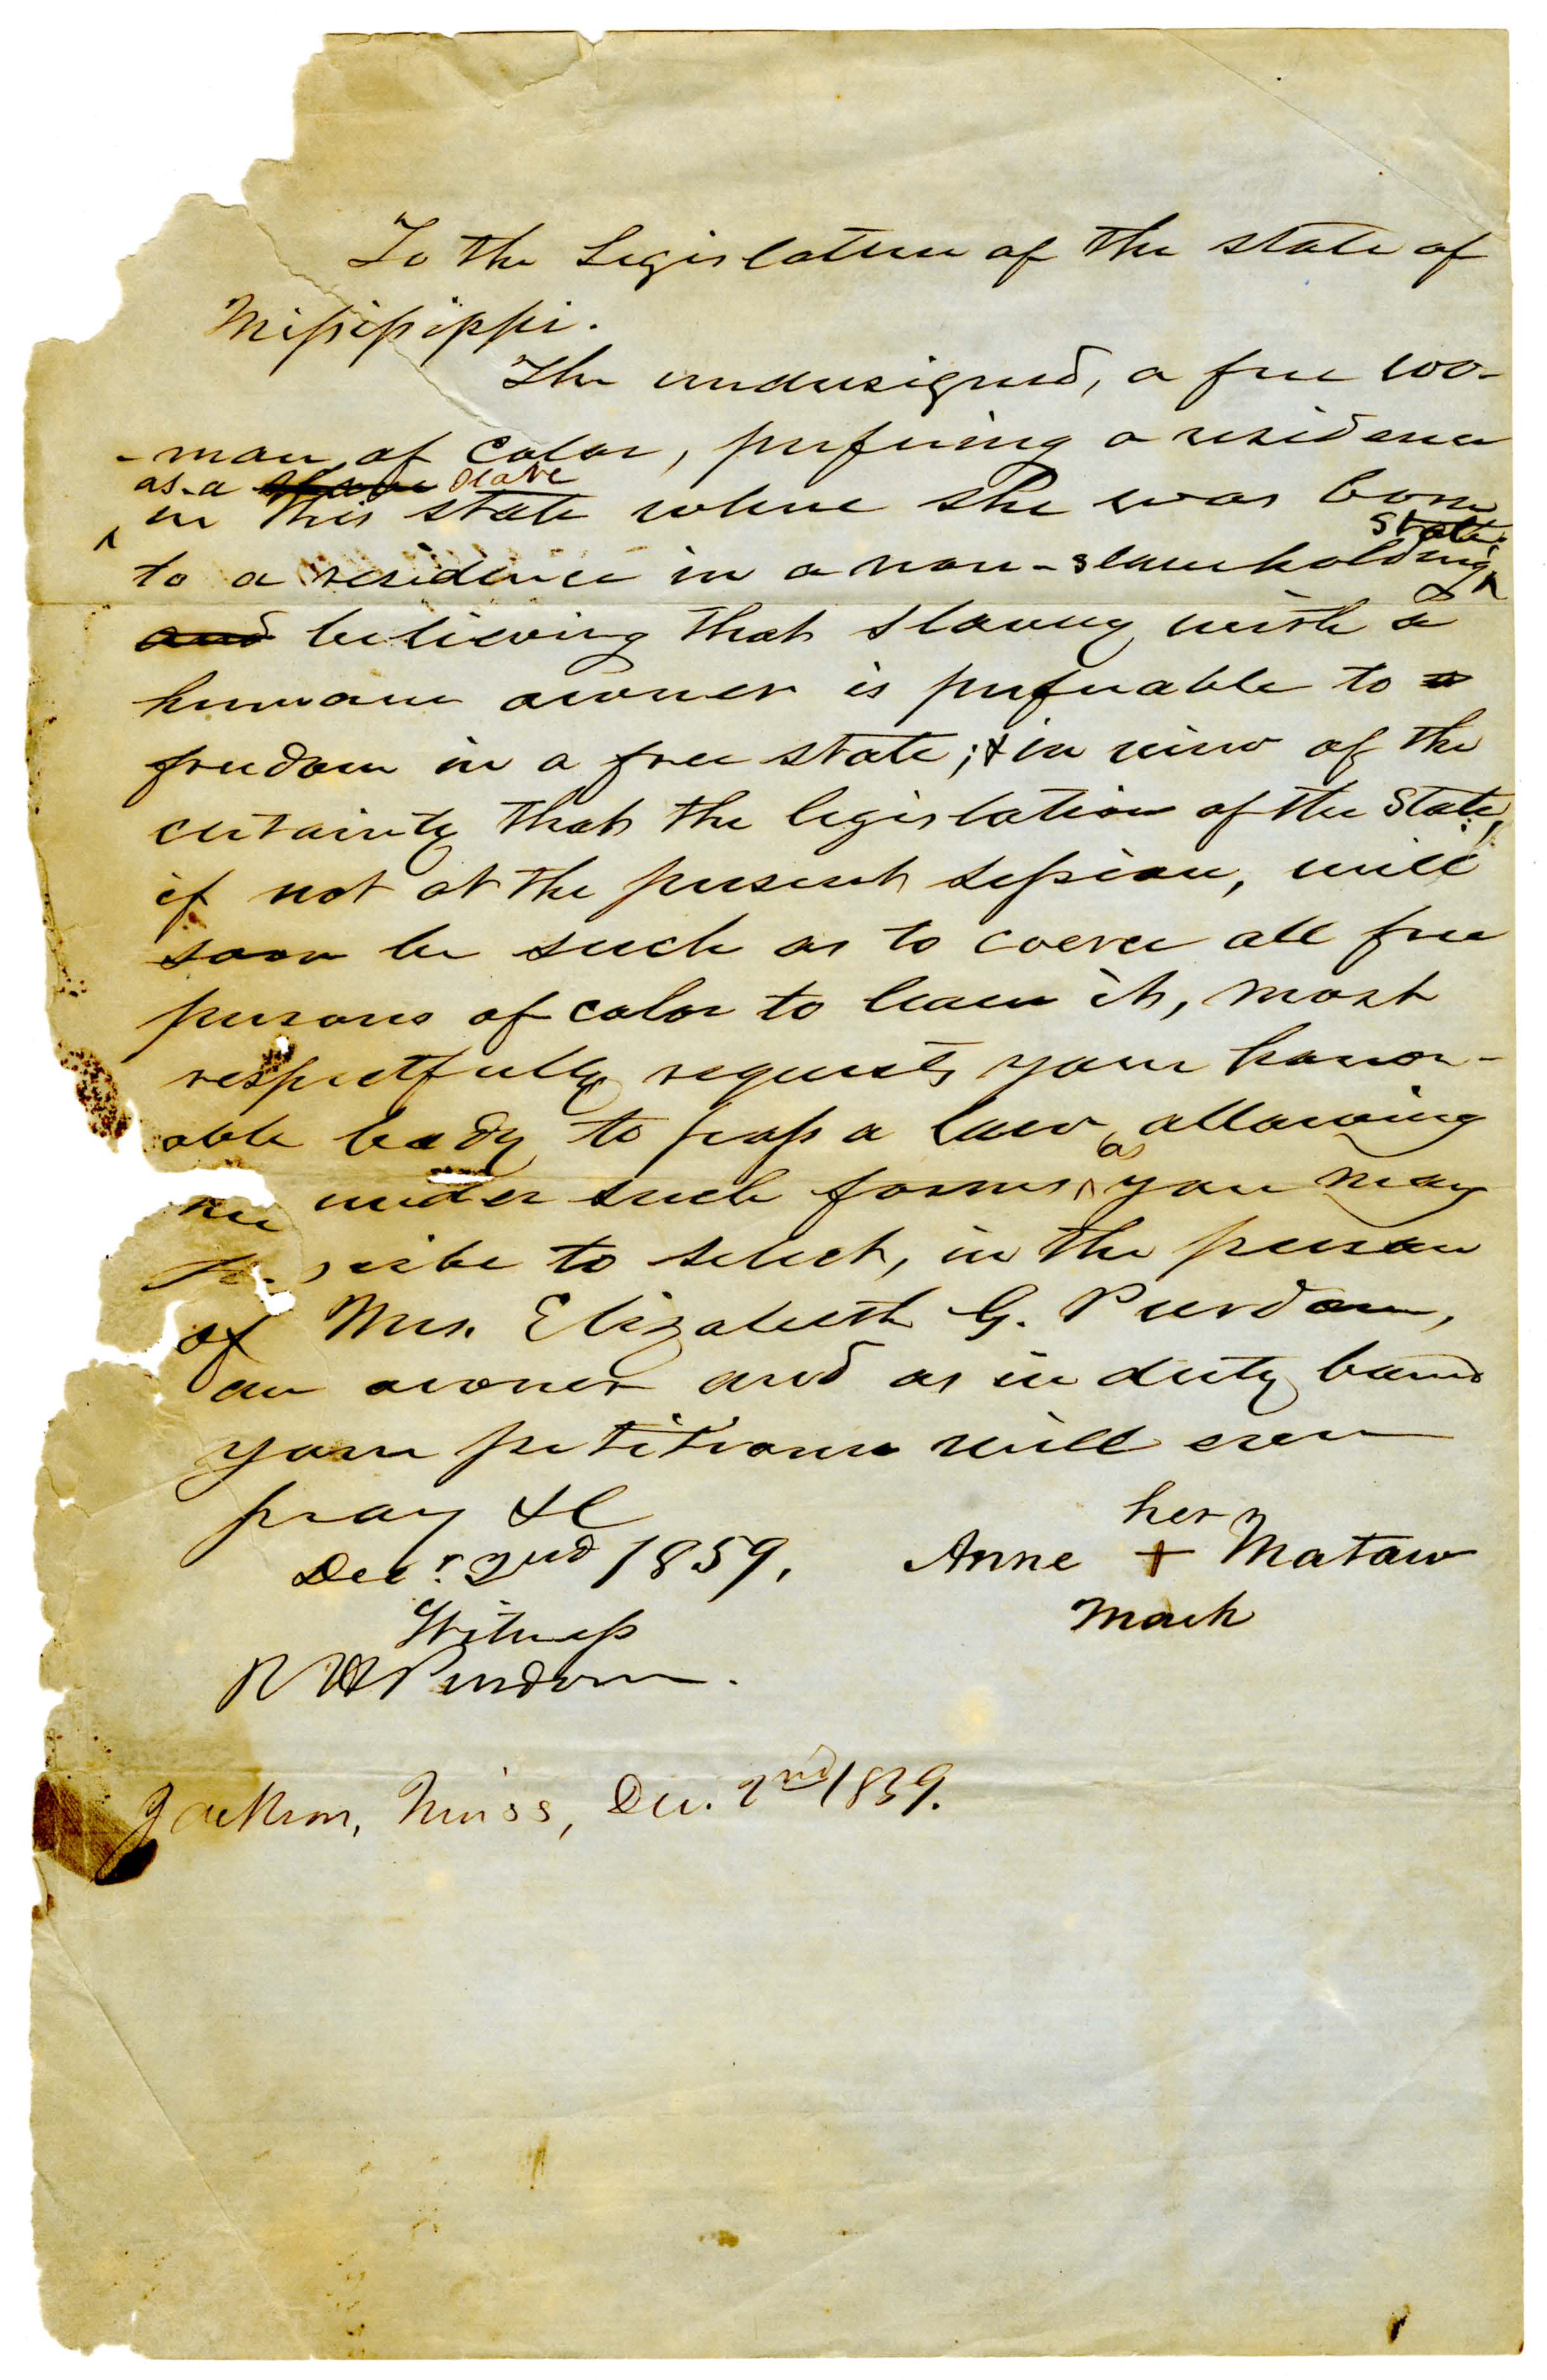 To the Legislature of the state of
Mississippi.
The undersigned, a free wo-
-man of color, preferring a residence
as a slave slave
in this state where she was born
state
to a residence in a non-slaveholding
and believing that slavery with a
humane owner is preferable to a
freedom in a free state; & in view of the
certainty that the legislation of the State,
if not at the present session, will
soon be such as to coerce all free
persons of color to leave it, most
respectfully requests your honor-
able body to pass a law allowing
as
me under such forms you may
scribe to select, in the person
of Mrs. Elizabeth G. Purdom,
an owner and as in duty bound
your petitioner will ever
pray &C
her
Decr. 2nd 1859, Anne + Mataw
mark
Witness
R W Purdom.
Jackson, Miss, Dec. 2nd 1859.